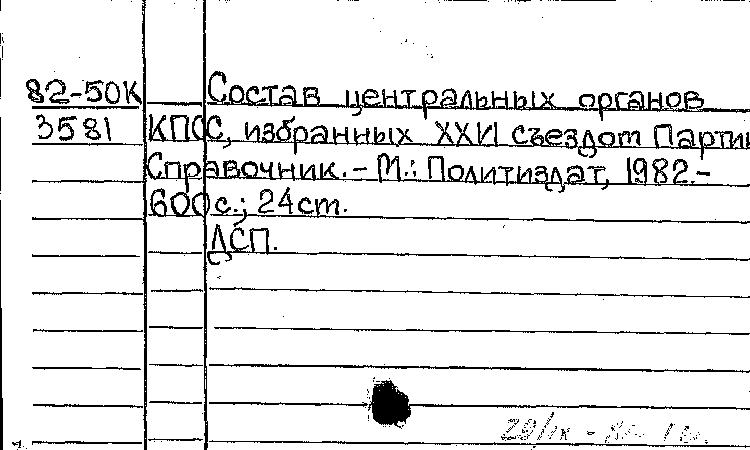 82-50К Состав центральных органов
3581 КПСС, избранных XXVI съездот Парти
Справочник. - М.: Политиздат, 1982.-
600с.; 24ст.
ДСП.